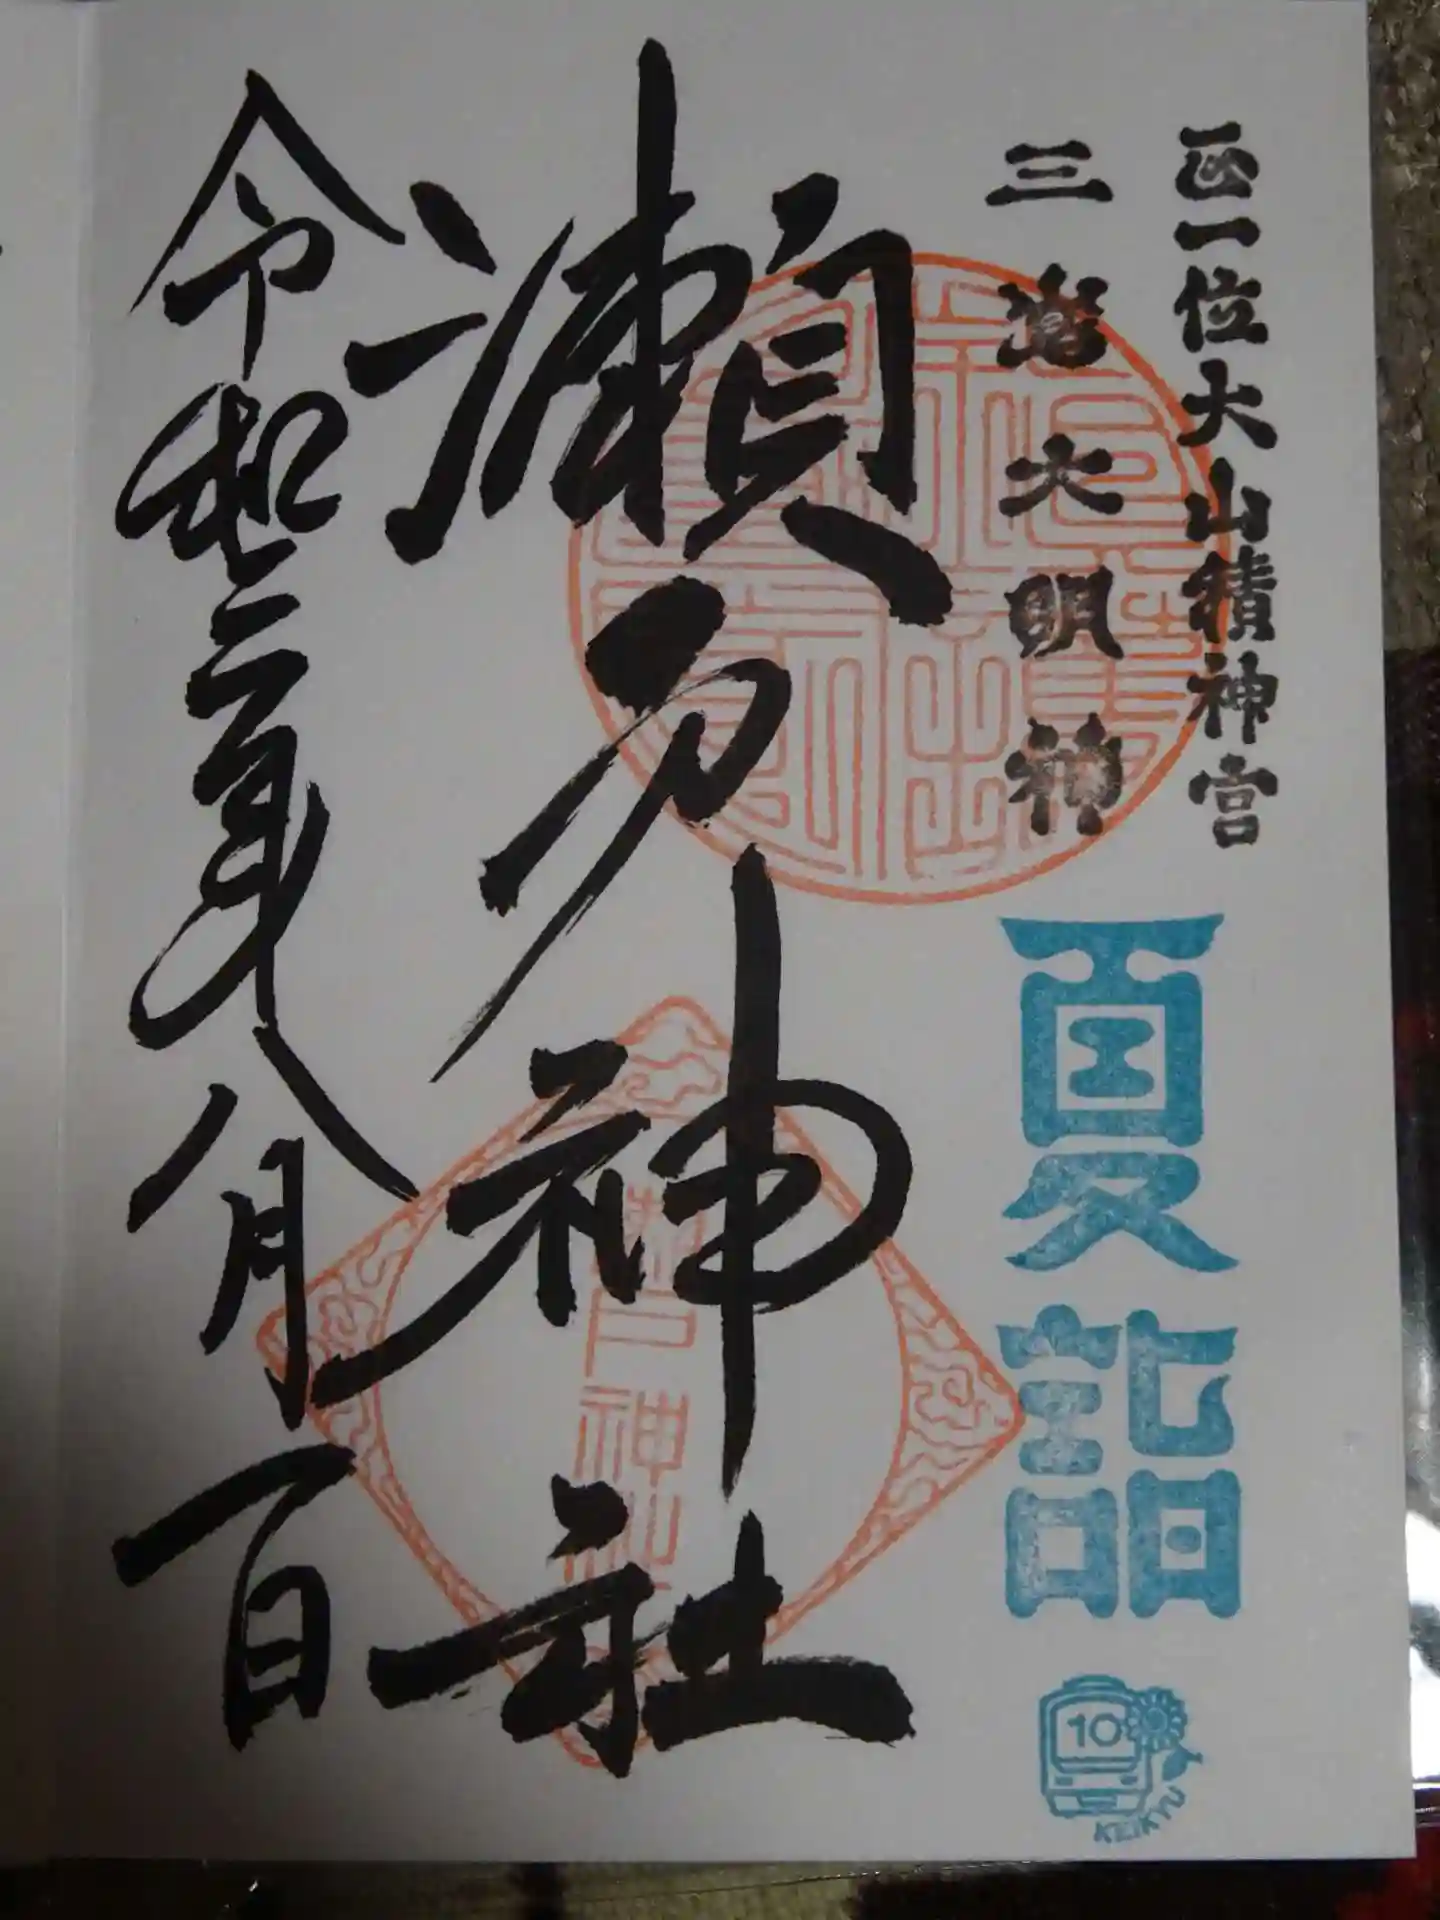 正一位大山積神宮
三嶌大明神
夏詣
10
KEIKYU
瀬戸神社
令和二年八月一日
瀬戸神社